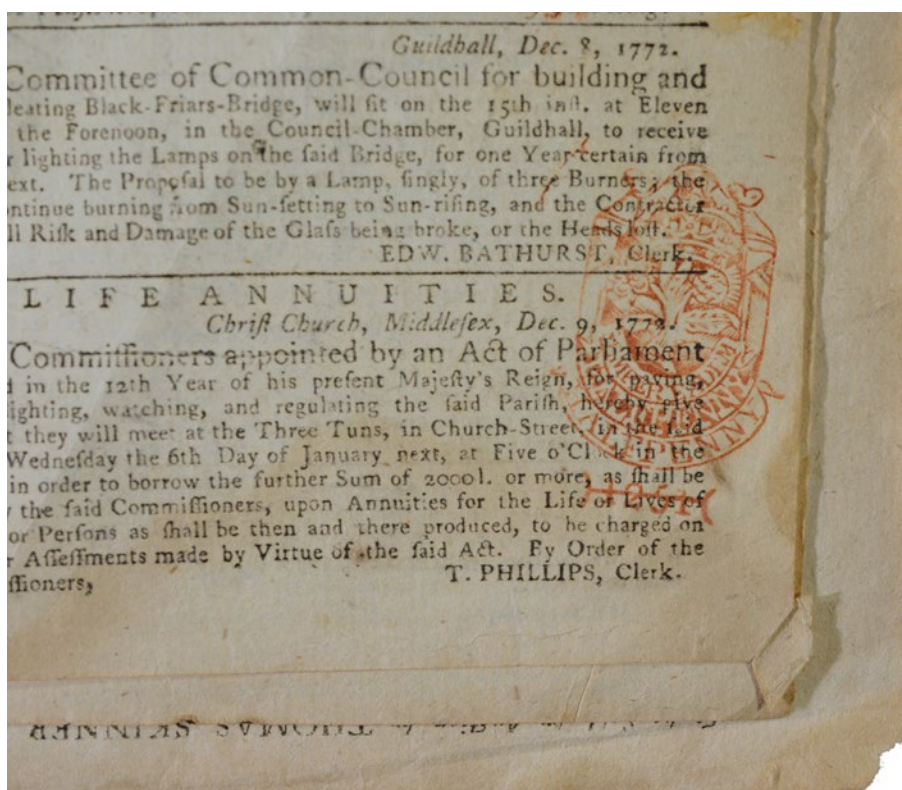 Guildhall, Dec. 8, 1772.
Committee of Common-Council for building and
leating Black-Friars-Bridge, will ſit on the 15th inſt. at Eleven
the Forenoon, in the Council-Chamber, Guildhall, to receive
r lighting the Lamps on the ſaid Bridge, for one Year certain from
ext. The Propoſal to be by a Lamp, ſingly, of three Burners; the
ontinue burning from Sun-ſetting to Sun-riſing, and the Contractor
ll Riſk and Damage of the Glaſs being broke, or the Heads loſt.
EDW. BATHURST, Clerk.
LIFE ANNUITIES.
Chriſt Church, Middleſex, Dec. 9, 1772.
Commiſſioners appointed by an Act of Parliament
d in the 12th Year of his preſent Majeſty's Reign, for paving,
ighting, watching, and regulating the ſaid Pariſh, hereby give
t they will meet at the Three Tuns, in Church-Street, in the ſaid
Wedneſday the 6th Day of January next, at Five o'Clock in the
in order to borrow the further Sum of 2000l. or more, as ſhall be
the ſaid Commiſſioners, upon Annuities for the Life or Lives of
or Perſons as ſhall be then and there produced, to be charged on
r Aſſeſſments made by Virtue of the ſaid Act. By Order of the
ſſioners,
T. PHILLIPS, Clerk.
HALFPENNY
THOMAS SKINNER